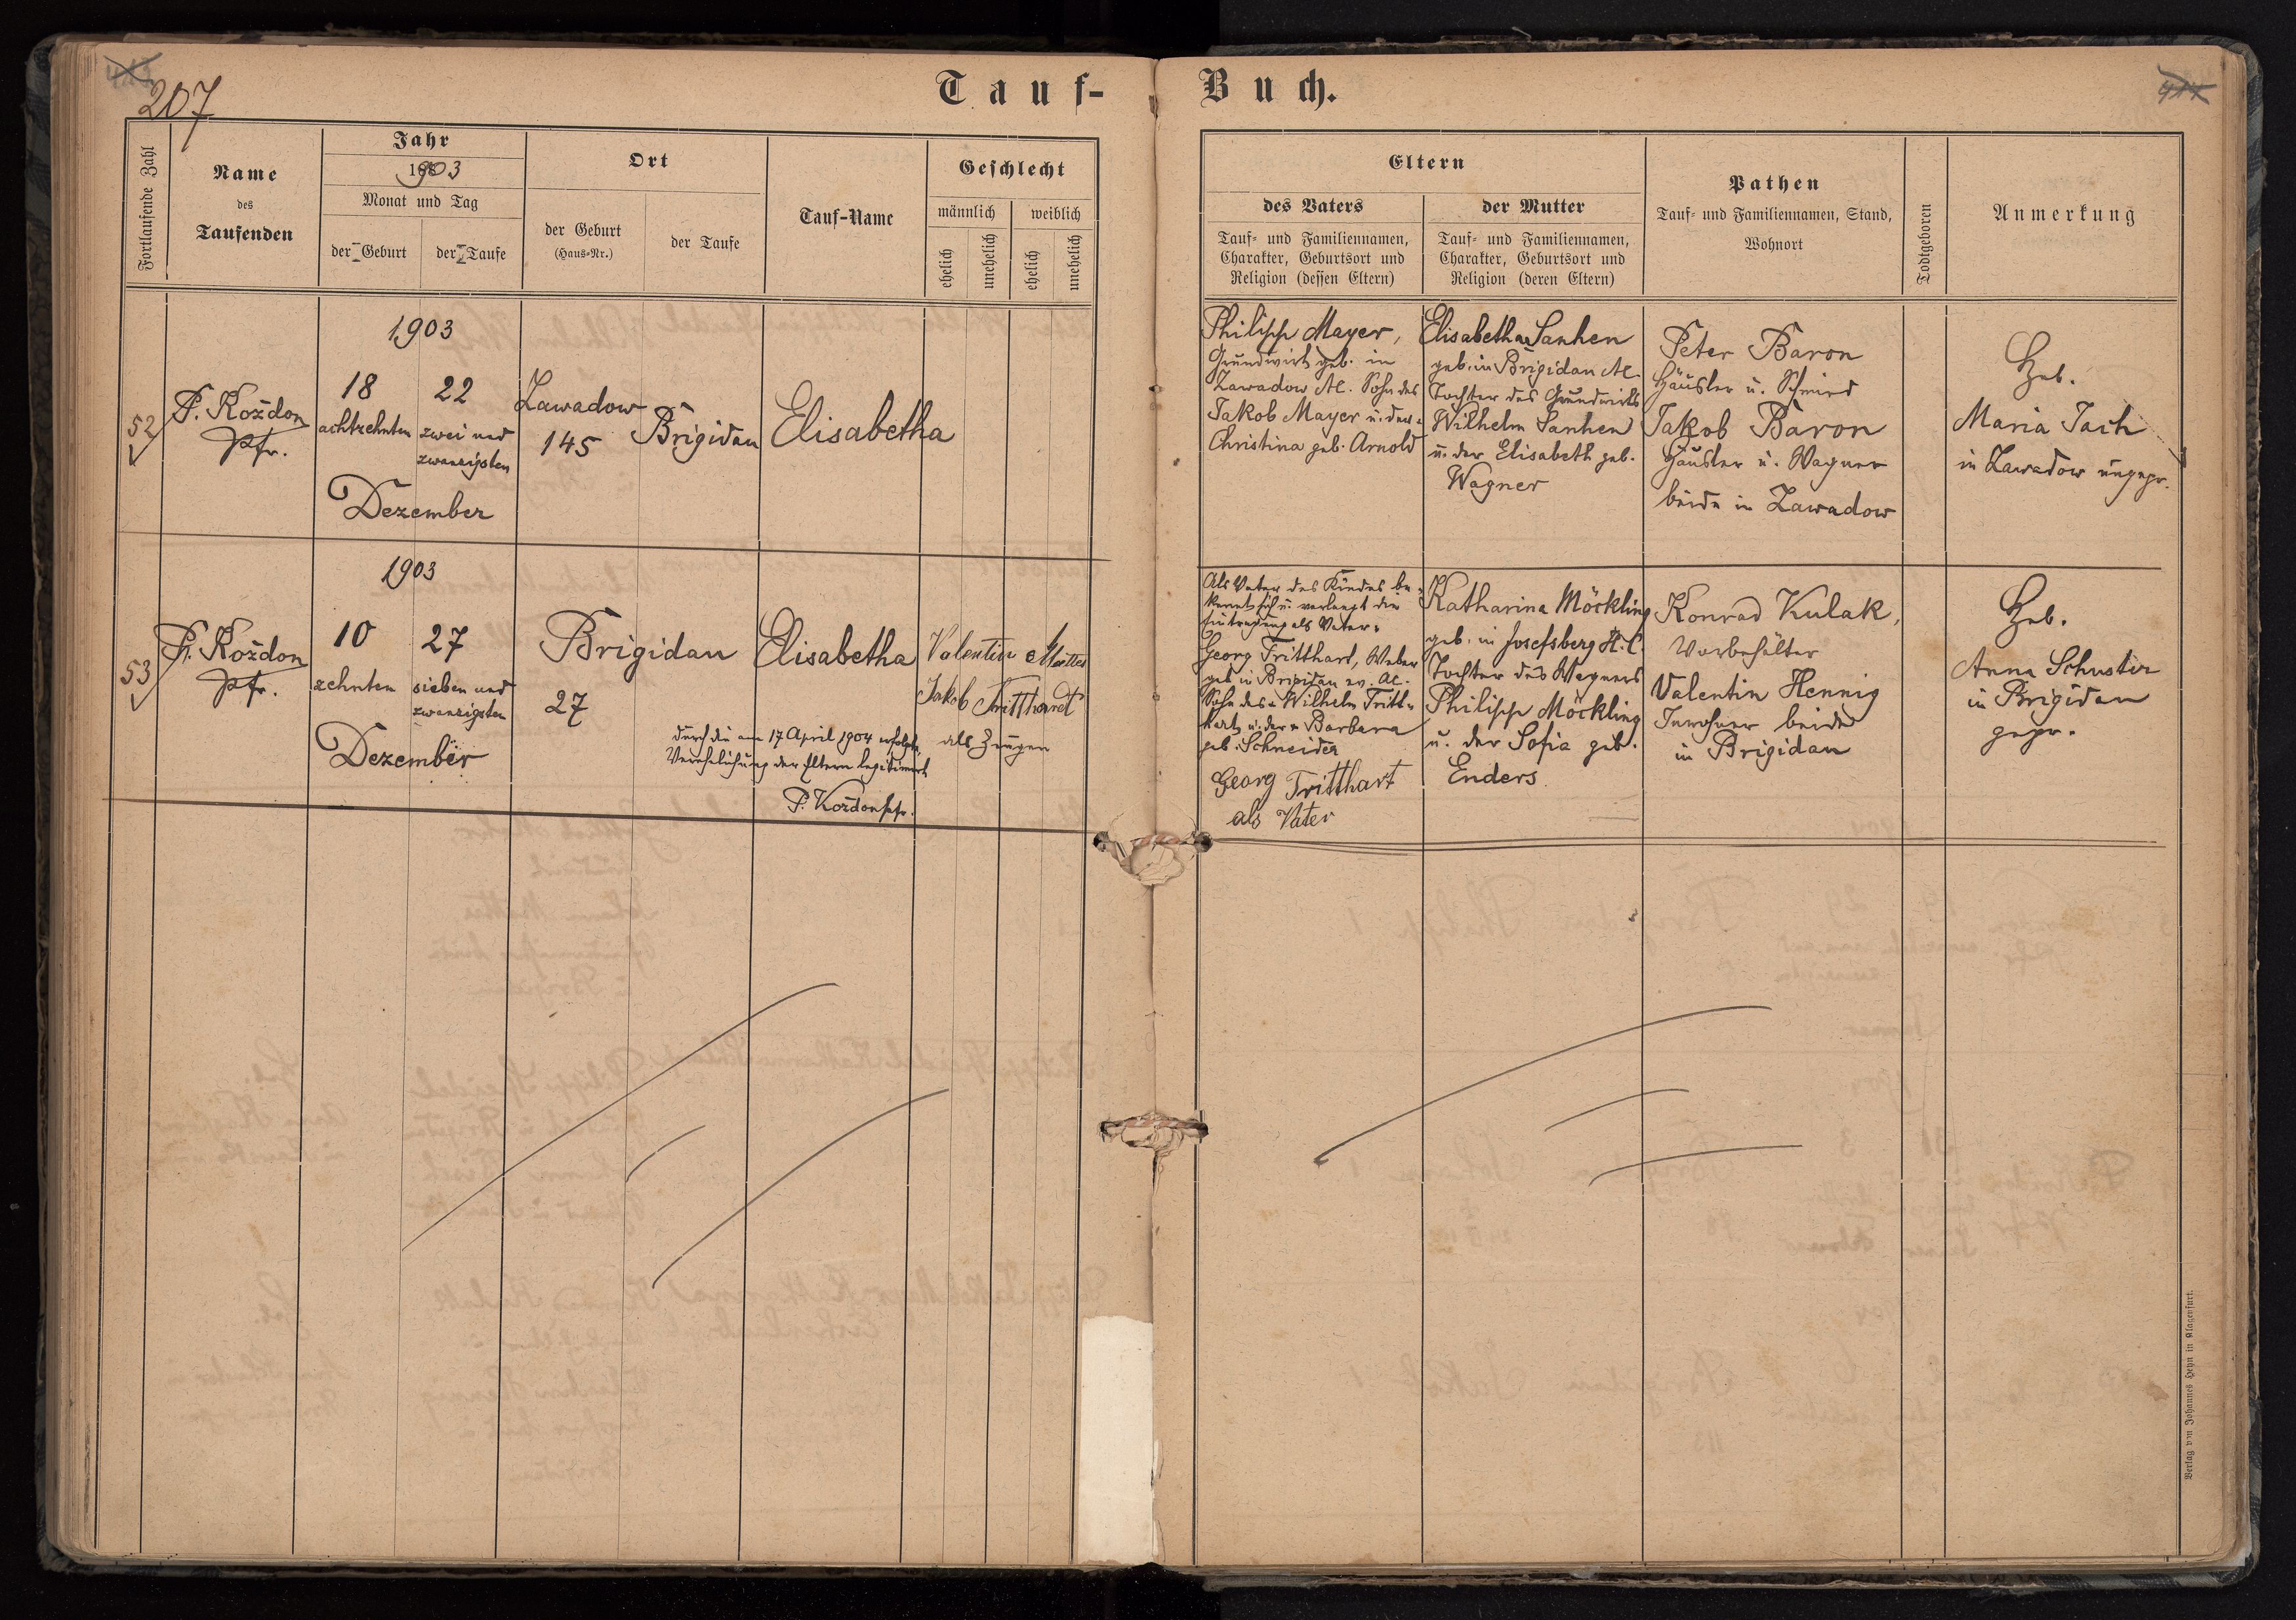 207
Tauf-
Buch.
Fortlaufende Zahl
Name
des
Taufenden
Jahr
1903
Monat und Tag
der Geburt
der Taufe
Ort
der Geburt
(Haus-Nr.)
der Taufe
Tauf-Name
Geschlecht
männlich
weiblich
ehelich
unehelich
ehelich
unehelich
Eltern
des Vaters
Tauf- und Familiennamen,
Charakter, Geburtsort und
Religion (dessen Eltern)
der Mutter
Tauf- und Familiennamen,
Charakter, Geburtsort und
Religion (deren Eltern)
Pathen
Tauf- und Familiennamen, Stand,
Wohnort
Todtgeboren
Anmerkung
52
P. Koždon
Pfr.
1903
18
achtzehnten
22
zwei und
zwanzigsten
Dezember
Zawadow
145
Brigidau
Elisabetha
Philipp Mayer,
Grundwirt geb. in
Zawadow AC. Sohn des
Jakob Mayer u. der
Christina geb. Arnold
Elisabetha Sanhen
geb. in Brigidau AC.
Tochter des Grundwirts
Wilhelm Sanhen
u. der Elisabeth geb.
Wagner
Peter Baron
Häusler u. Schmied
Jakob Baron
Häusler u. Wagner
beide in Zawadow
Heb.
Maria Jach
in Zawadow ungepr.
53
P. Koždon
Pfr.
1903
10
zehnten
27
sieben und
zwanzigsten
Dezember
Brigidau
27
Elisabetha
Valentin Mattes
Jakob Tritthardt
als Zeugen
durch die am 17 April 1904 erfolgte
Verehelichung der Eltern legitimirt
P. Koždon pfr.
Als Vater des Kindes be-
kennt sich u. verlangt die
Eintragung als Vater:
Georg Tritthart, Weber
geb in Brigidau ev. AC.
Sohn des Wilhelm Tritt-
hart u. der Barbara
geb. Schneider
Georg Tritthart
als Vater
Katharina Möckling
geb. in Josefsberg H.C.
Tochter des Wagners
Philipp Möckling
u. der Sofia geb.
Enders.
Konrad Kulak,
Vorbehälter
Valentin Hennig
Inwohner beide
in Brigidau
Heb.
Anna Schuster
in Brigidau
gepr.
Verlag von Johannes Heyn in Klagenfurt.